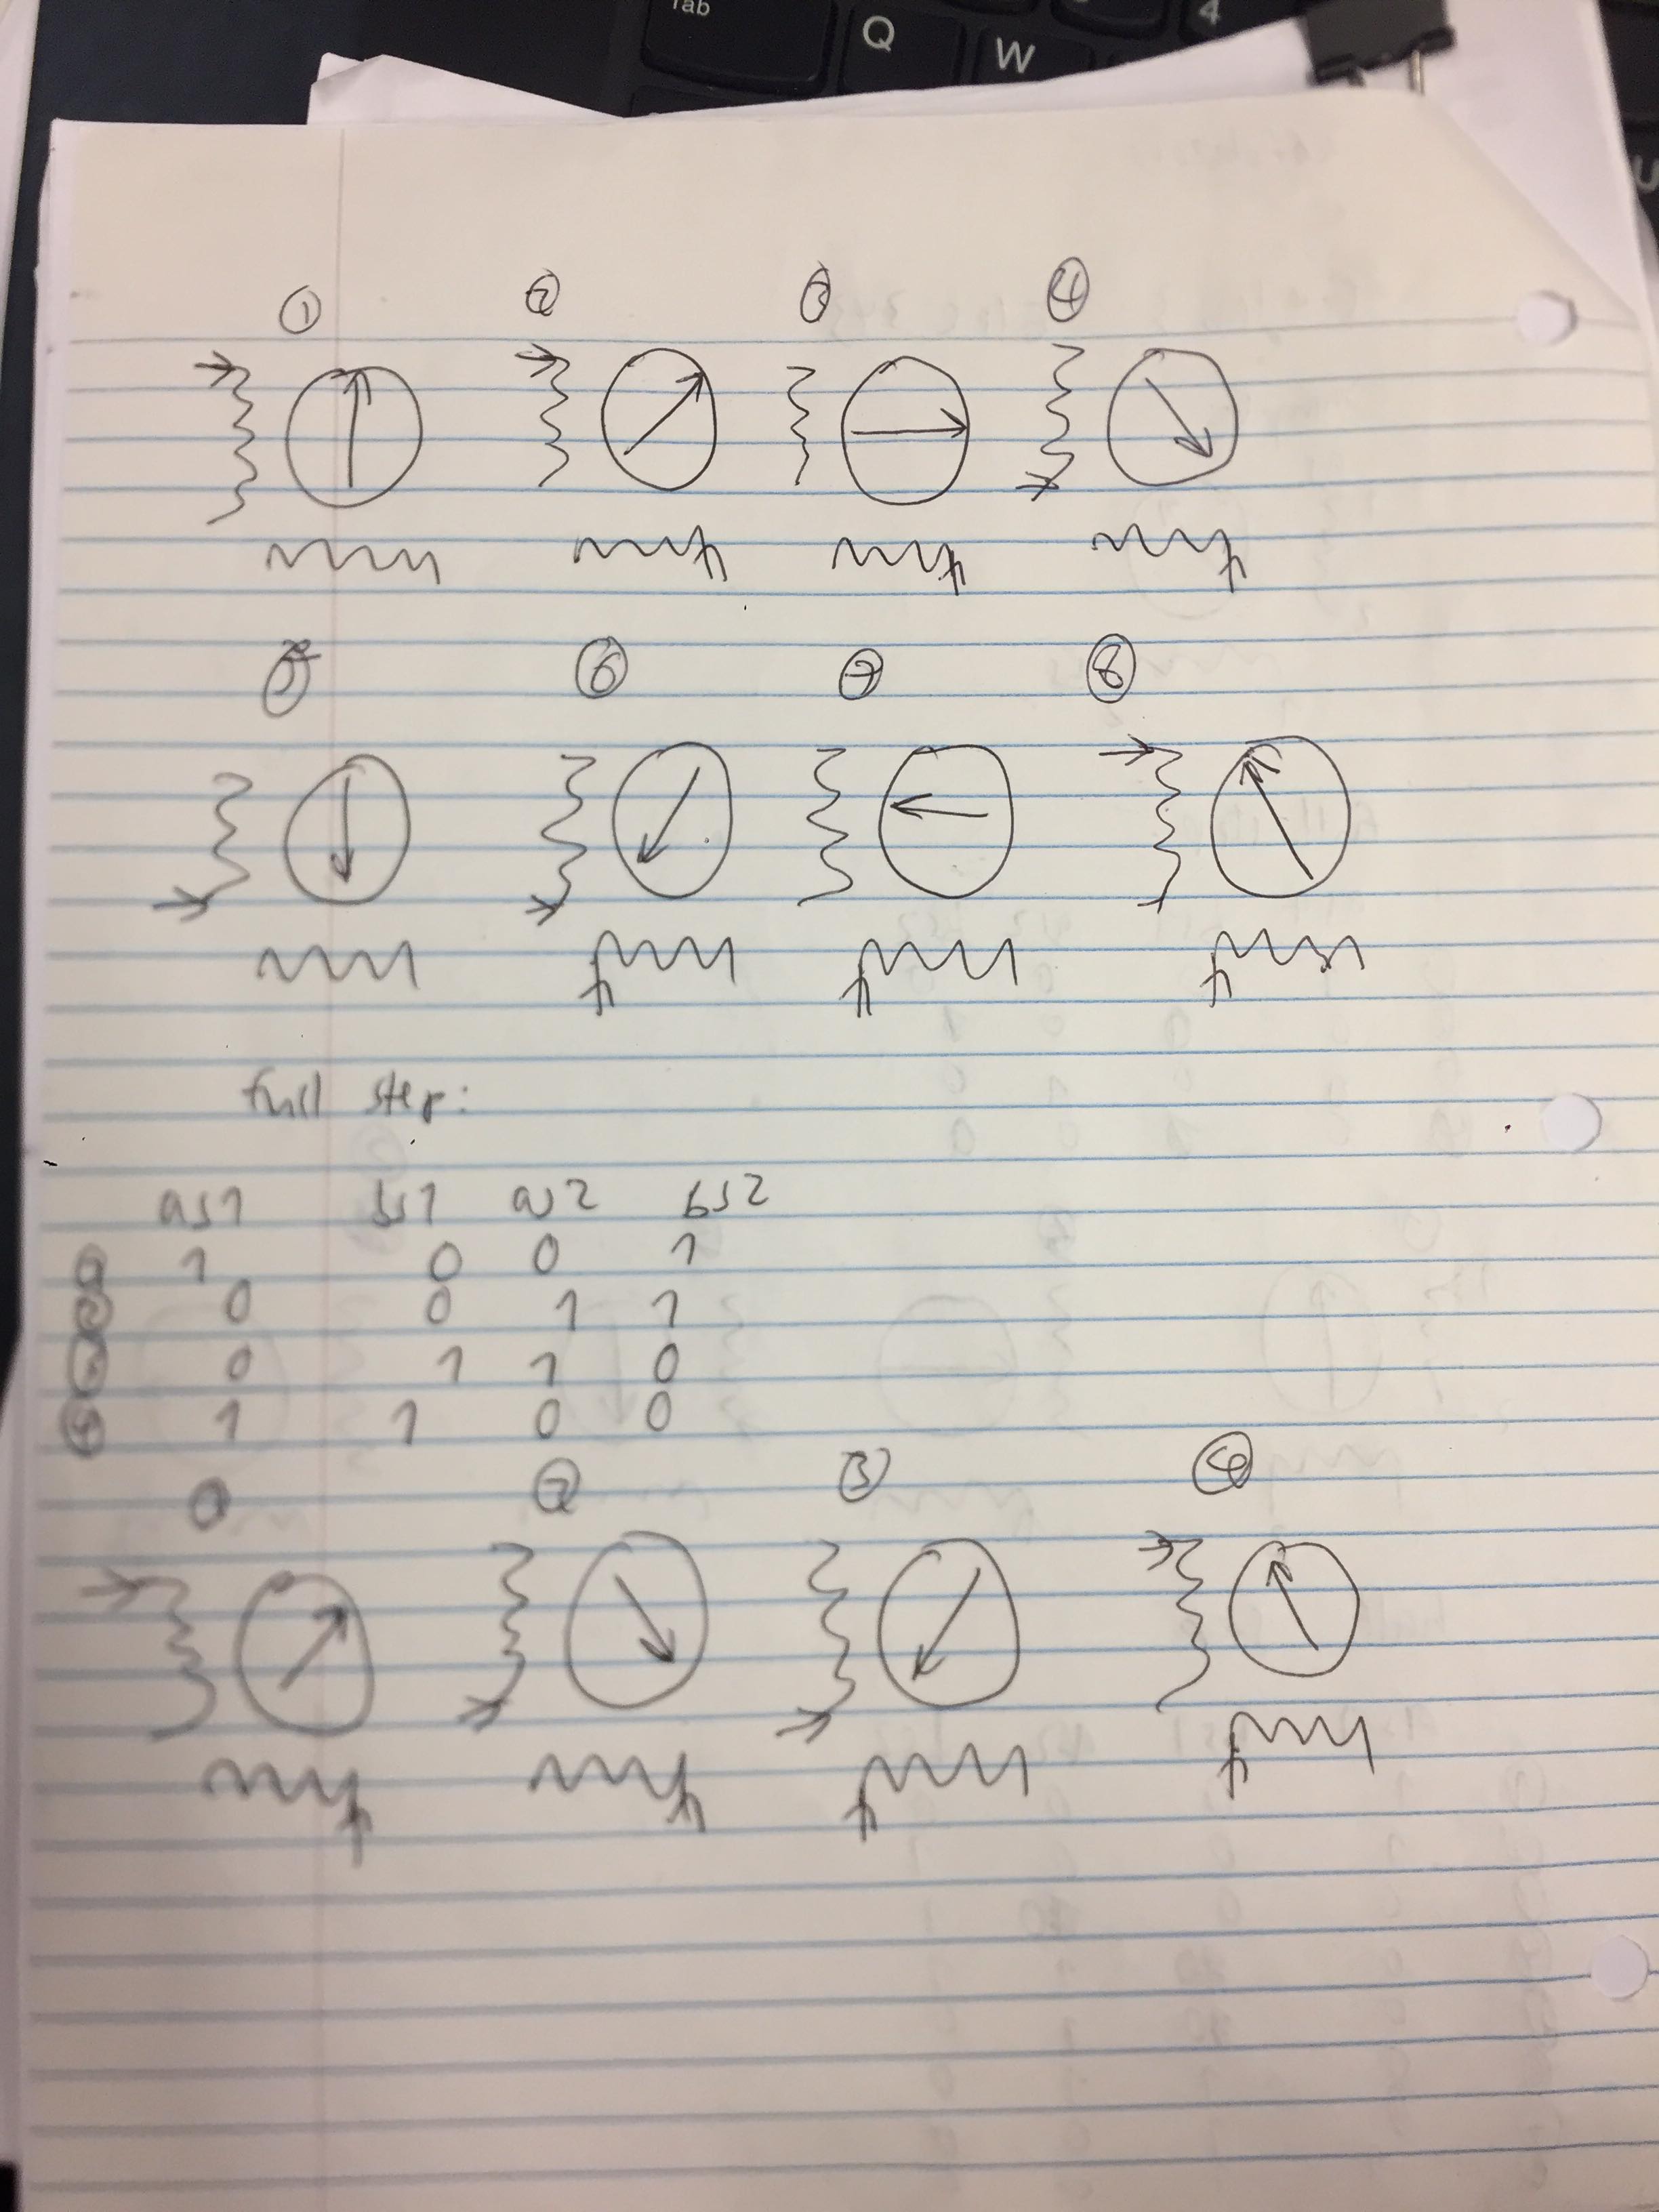 Tab
Q W 4
U
① ② ③ ④
⑤ ⑥ ⑦ ⑧
full step:
as1 bs1 as2 bs2
① 1 0 0 1
② 0 0 1 1
③ 0 1 1 0
④ 1 1 0 0
① ② ③ ④